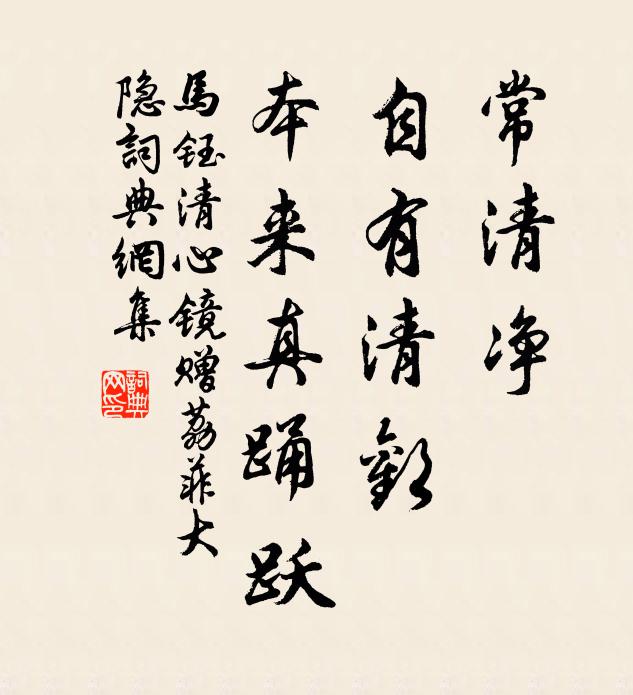 常清净
自有清歡
本来真踊跃
馬鈺清心镜赠荔菲大
隐詞典網集
詞典网印